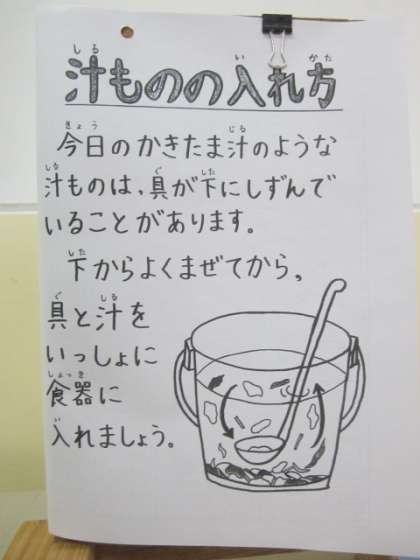 汁ものの入れ方
今日のかきたま汁のような
汁ものは、具が下にしずんで
いることがあります。
下からよくまぜてから、
具と汁を
いっしょに
食器に
入れましょう。